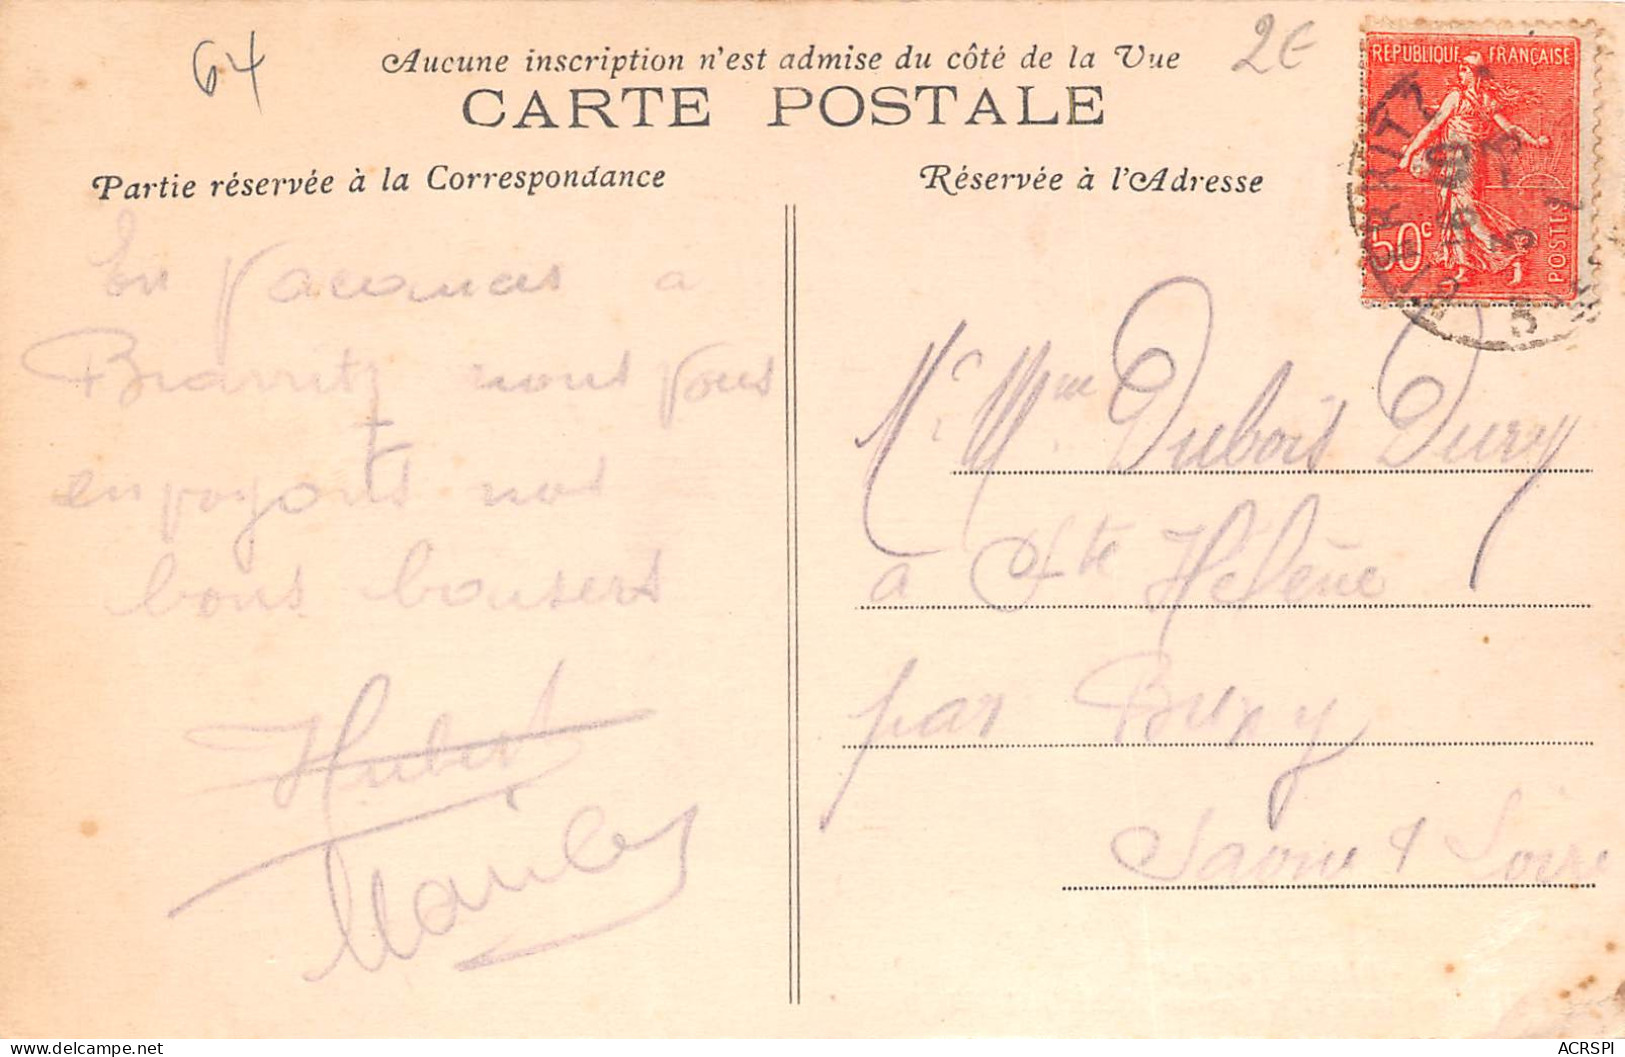 64
Aucune inscription n'est admise du côté de la Vue
2€
CARTE POSTALE
RÉPUBLIQUE FRANÇAISE
50c
POSTES
BIARRITZ
Partie réservée à la Correspondance
Réservée à l'Adresse
En Vacances a
Biarritz nous vous
envoyons nos
bons baisers
Hubert
Mr. Mme Dubois Dury
a Ste Hélène
par Buxy
Saone & Loire
delcampe.net
ACRSPI